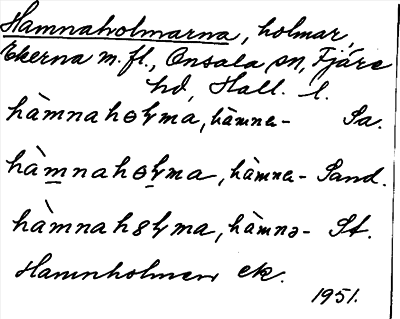 Hamnaholmarna, holmar,
Ekerna m. fl., Onsala sn, Fjäre
hd, Hall. l.
hàmnahɵɫma, hàmna- Sa.
hàmnahɵɫma, hàmna- Sand.
hàmnahɵɫma, hàmnə- St.
Hamnholmen ek.
1951.